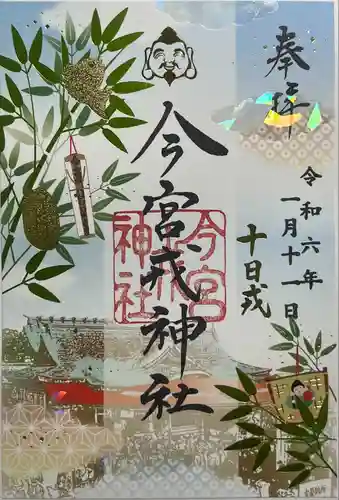 奉拝
令和六年
一月十一日
十日戎
今宮戎神社
今宮
戎
神社